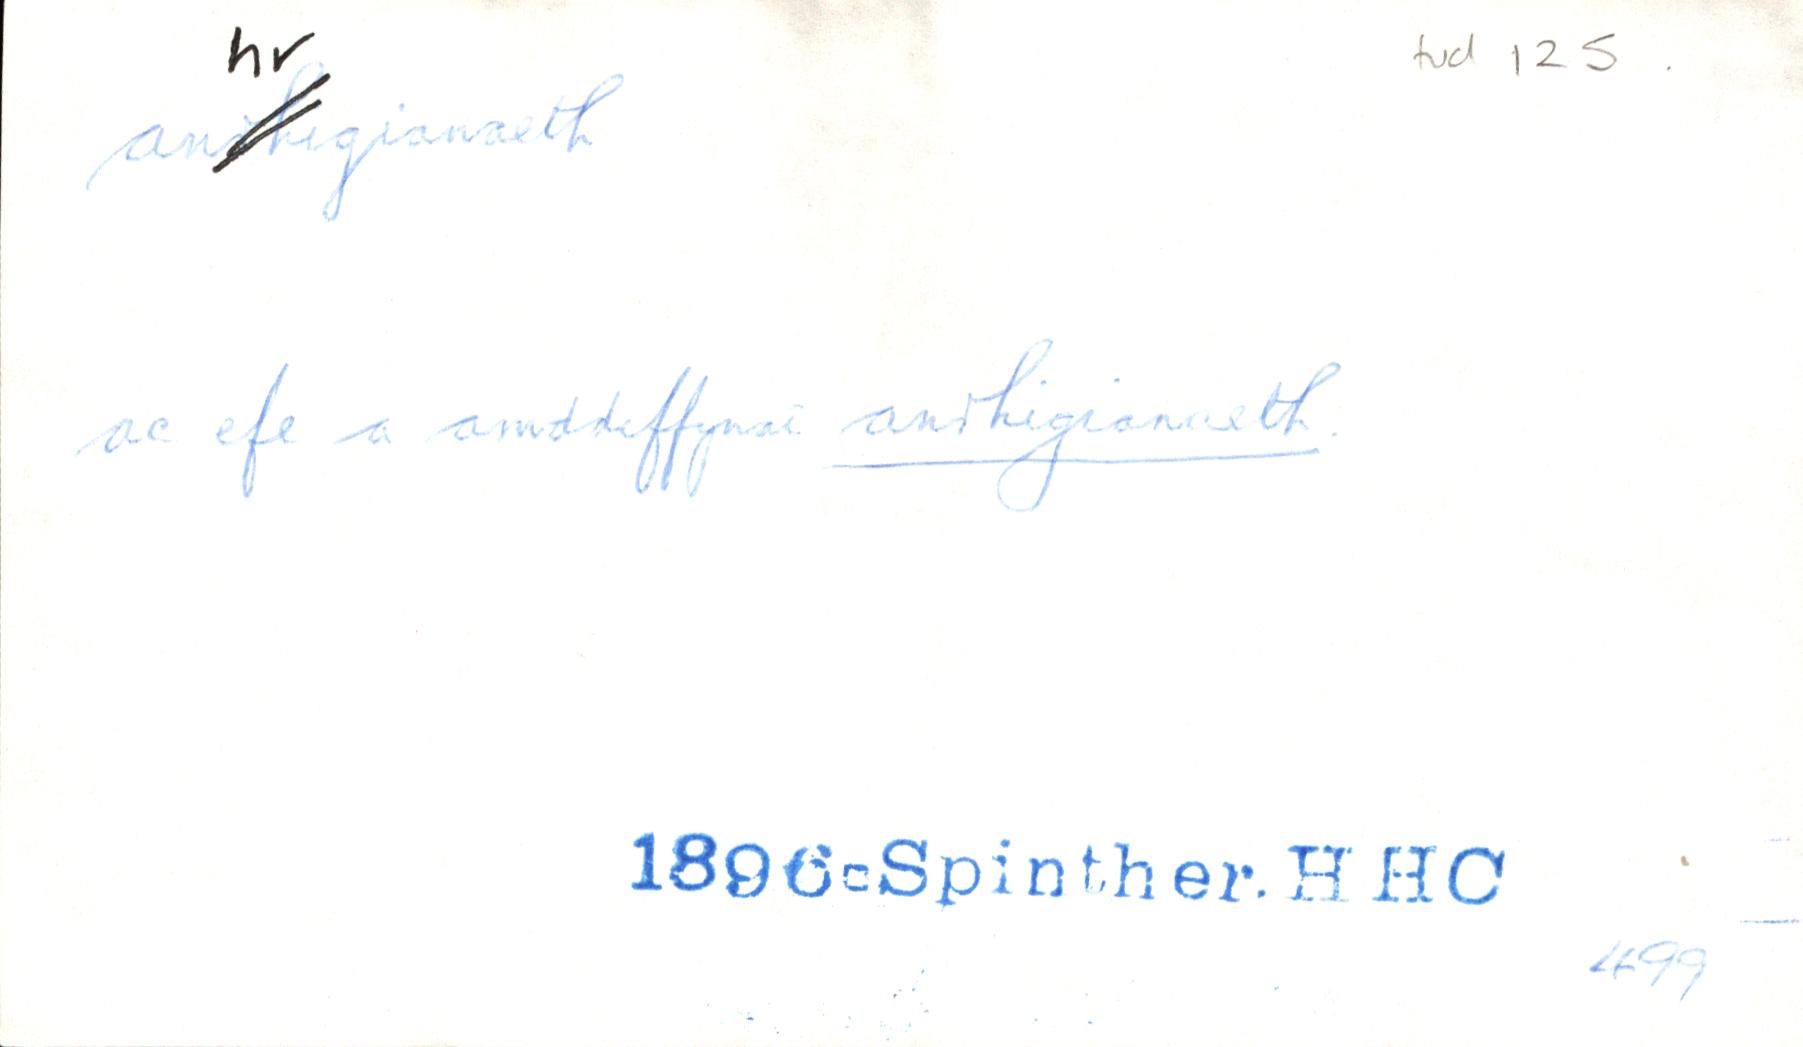 tud 125.
hr
anrhigianaeth
ac efe a amddeffynai anrhigianaeth.
1896=Spinther. HHC
499